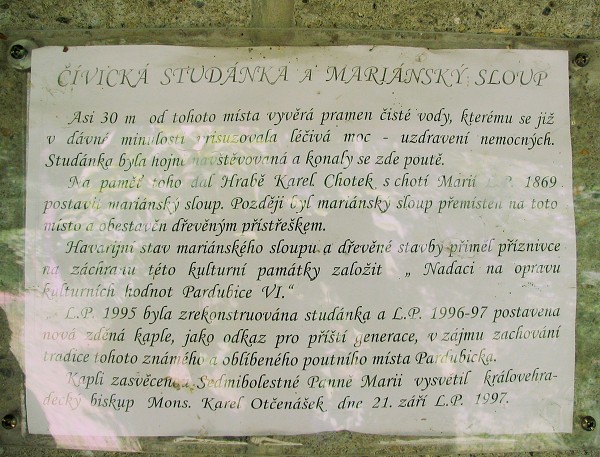 ČÍVICKÁ STUDÁNKA A MARIÁNSKÝ SLOUP
Asi 30 m od tohoto místa vyvěrá pramen čisté vody, kterému se již
v dávné minulosti prisuzovala léčivá moc - uzdravení nemocných.
Studánka byla hojně navštěvovaná a konaly se zde poutě.
Na paměť toho dal Hrabě Karel Chotek s chotí Marií L.P. 1869
postavit mariánský sloup. Později byl mariánský sloup přemístěn na toto
místo a obestavěn dřevěným přístřeškem.
Havarijní stav mariánského sloupu a dřevěné stavby přiměl příznivce
na záchranu této kulturní památky založit „ Nadaci na opravu
kulturních hodnot Pardubice VI.“
L.P. 1995 byla zrekonstruována studánka a L.P. 1996-97 postavena
nová zděná kaple, jako odkaz pro příští generace, v zájmu zachování
tradice tohoto známého a oblíbeného poutního místa Pardubicka.
Kapli zasvěcenou Sedmibolestné Panně Marii vysvětil královehra-
decký biskup Mons. Karel Otčenášek dne 21. září L.P. 1997.